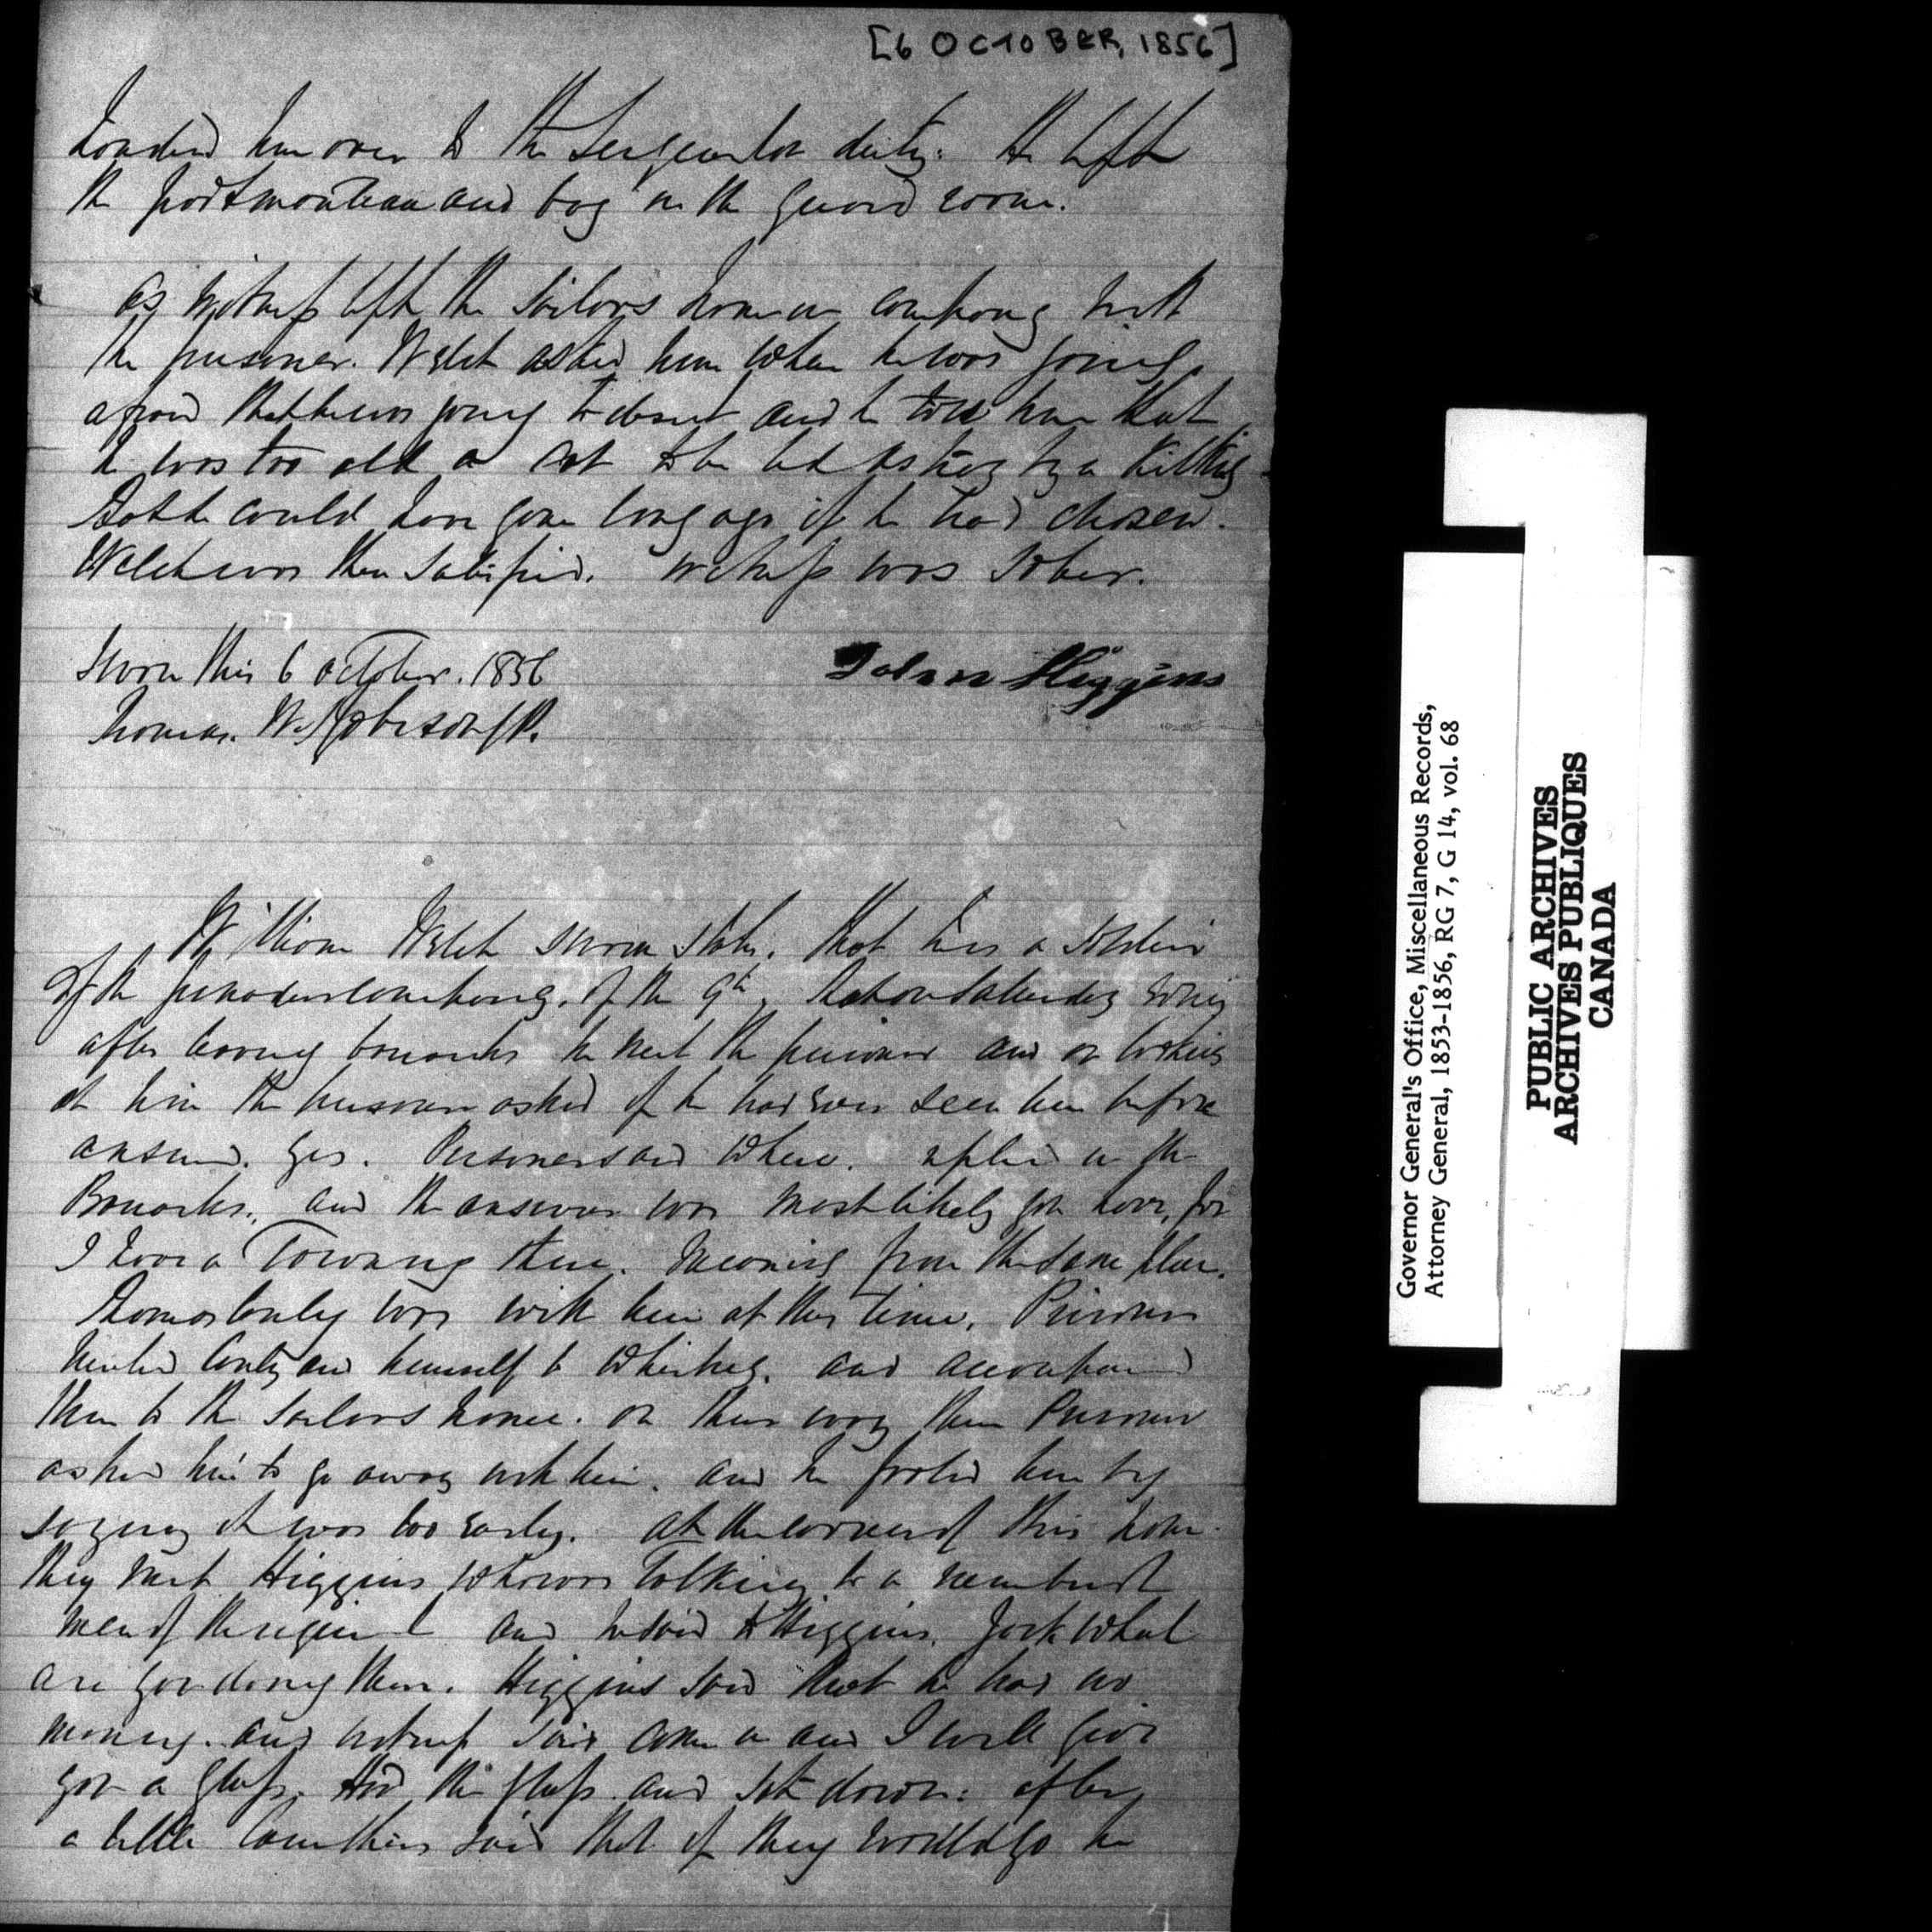 [6 OCTOBER, 1856]
handed him over to the Sergeant on duty. He left
the portmanteau and bag in the guard room.
As witness left the Sailors home in company with
the prisoner. Welch asked him where he was going
afraid that he was going to desert and he told him that
he was too old a cat to be led astray by a Kitting
that he could have gone long ago if he had chosen.
Welch was then satisfied. witness was sober.
Sworn this 6 October. 1856
John Higgins
Thomas. W. Robison JP.
William Welch sworn states. that he is a soldier
of the grenadier company. of the 9th, that on Saturday Evening
after leaving barracks he met the prisoner and on looking
at him the prisoner asked if he had ever seen him before
answered. yes. Prisoner said where. replied in the
Barracks, and the answer was most likely you have, for
I have a Towney there. meaning from the same place.
Thomas was with him at this time. Prisoner
invited and himself to Whiskey. and accompanied
them to the Sailors home. on their way there Prisoner
asked him to go away with him. and he fooled him by
saying it was too early. At the corner of this home.
they met Higgins who was Talking to a number of
men of the regiment and he said to Higgins. Jack what
are you doing there. Higgins said that he had no
money. and witness said come in and I will give
you a glass. Had the glass and sat down. after
a little said that if they would go he
Governor General's Office, Miscellaneous Records,
Attorney General, 1853-1856, RG 7, G 14, vol. 68
PUBLIC ARCHIVES
ARCHIVES PUBLIQUES
CANADA